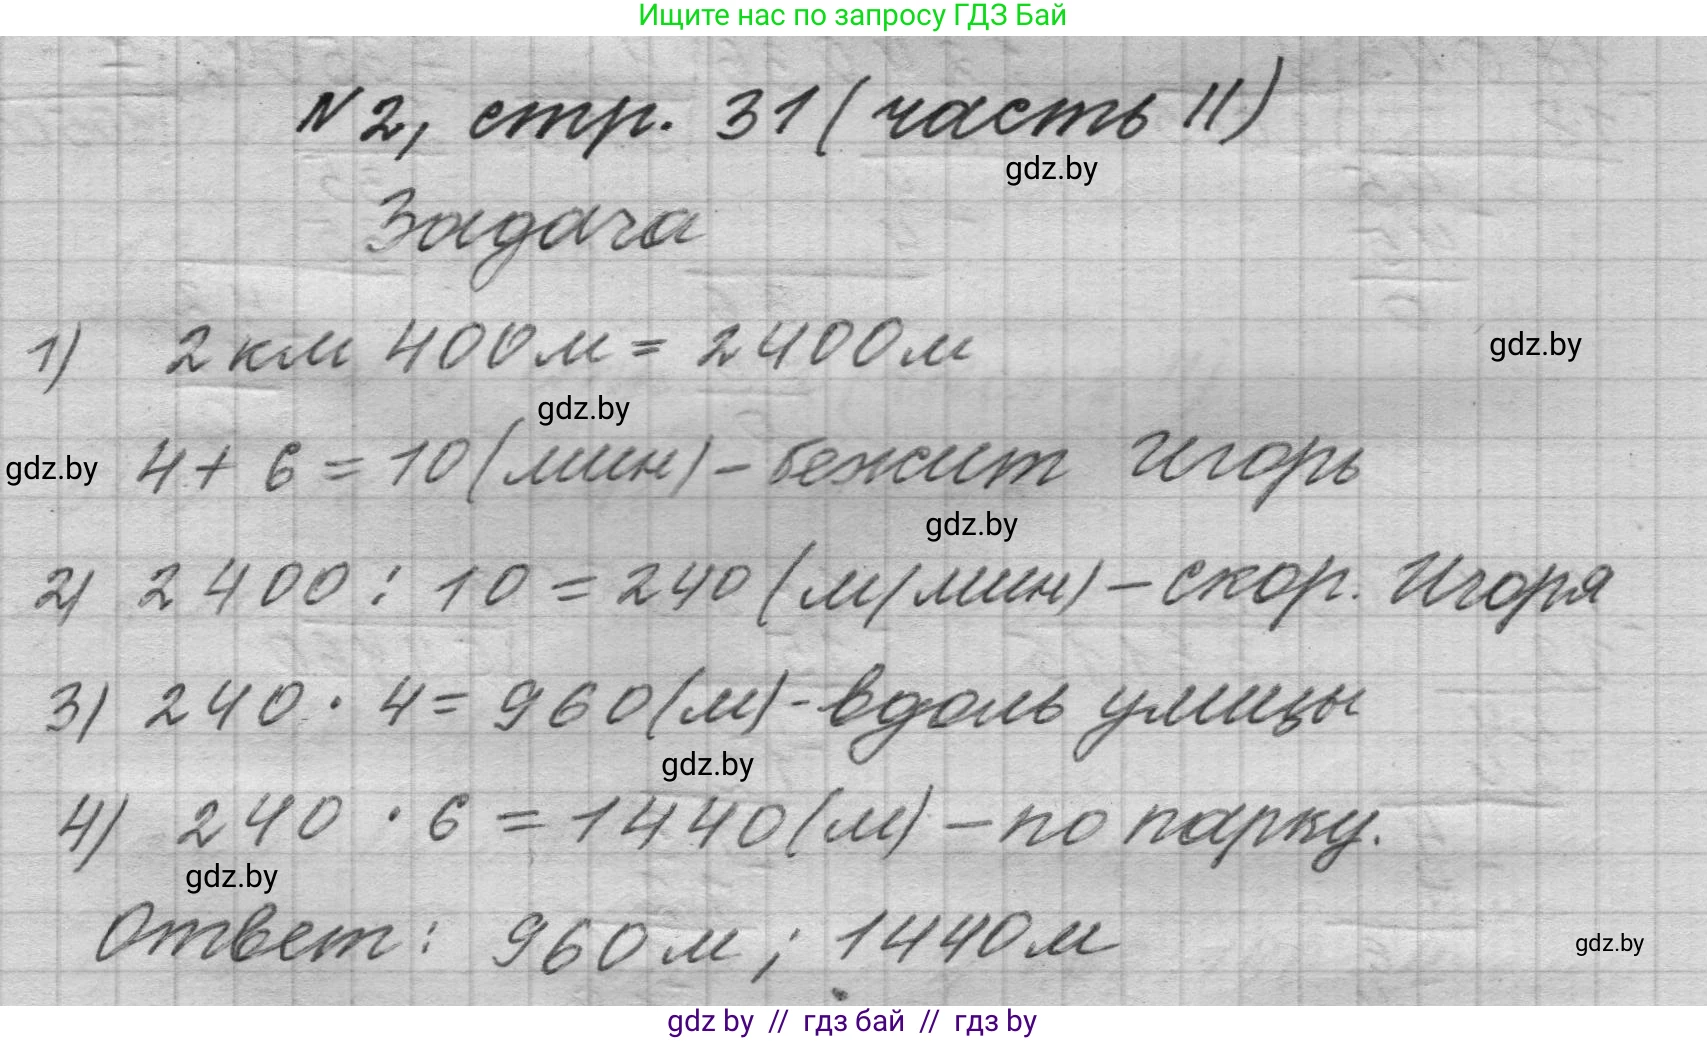 Ищите нас по запросу ГДЗ Бай
N2, стр. 31 (часть II)
gdz.by
Задача
1) 2 км 400 м = 2400 м
gdz.by
gdz.by
gdz.by
4 + 6 = 10 (мин) – бежит Игорь
gdz.by
2) 2400 : 10 = 240 (м/мин) – скор. Игоря
3) 240 · 4 = 960 (м) - вдоль улицы
gdz.by
4) 240 · 6 = 1440 (м) – по парку.
gdz.by
Ответ: 960 м; 1440 м
gdz.by
gdz by // гдз бай // гдз by